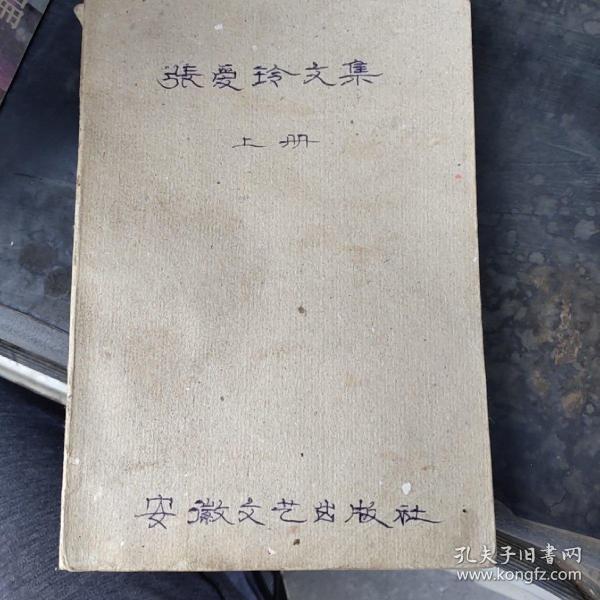 張爱玲文集
上册
安徽文艺出版社
孔夫子旧书网
www.kongfz.com